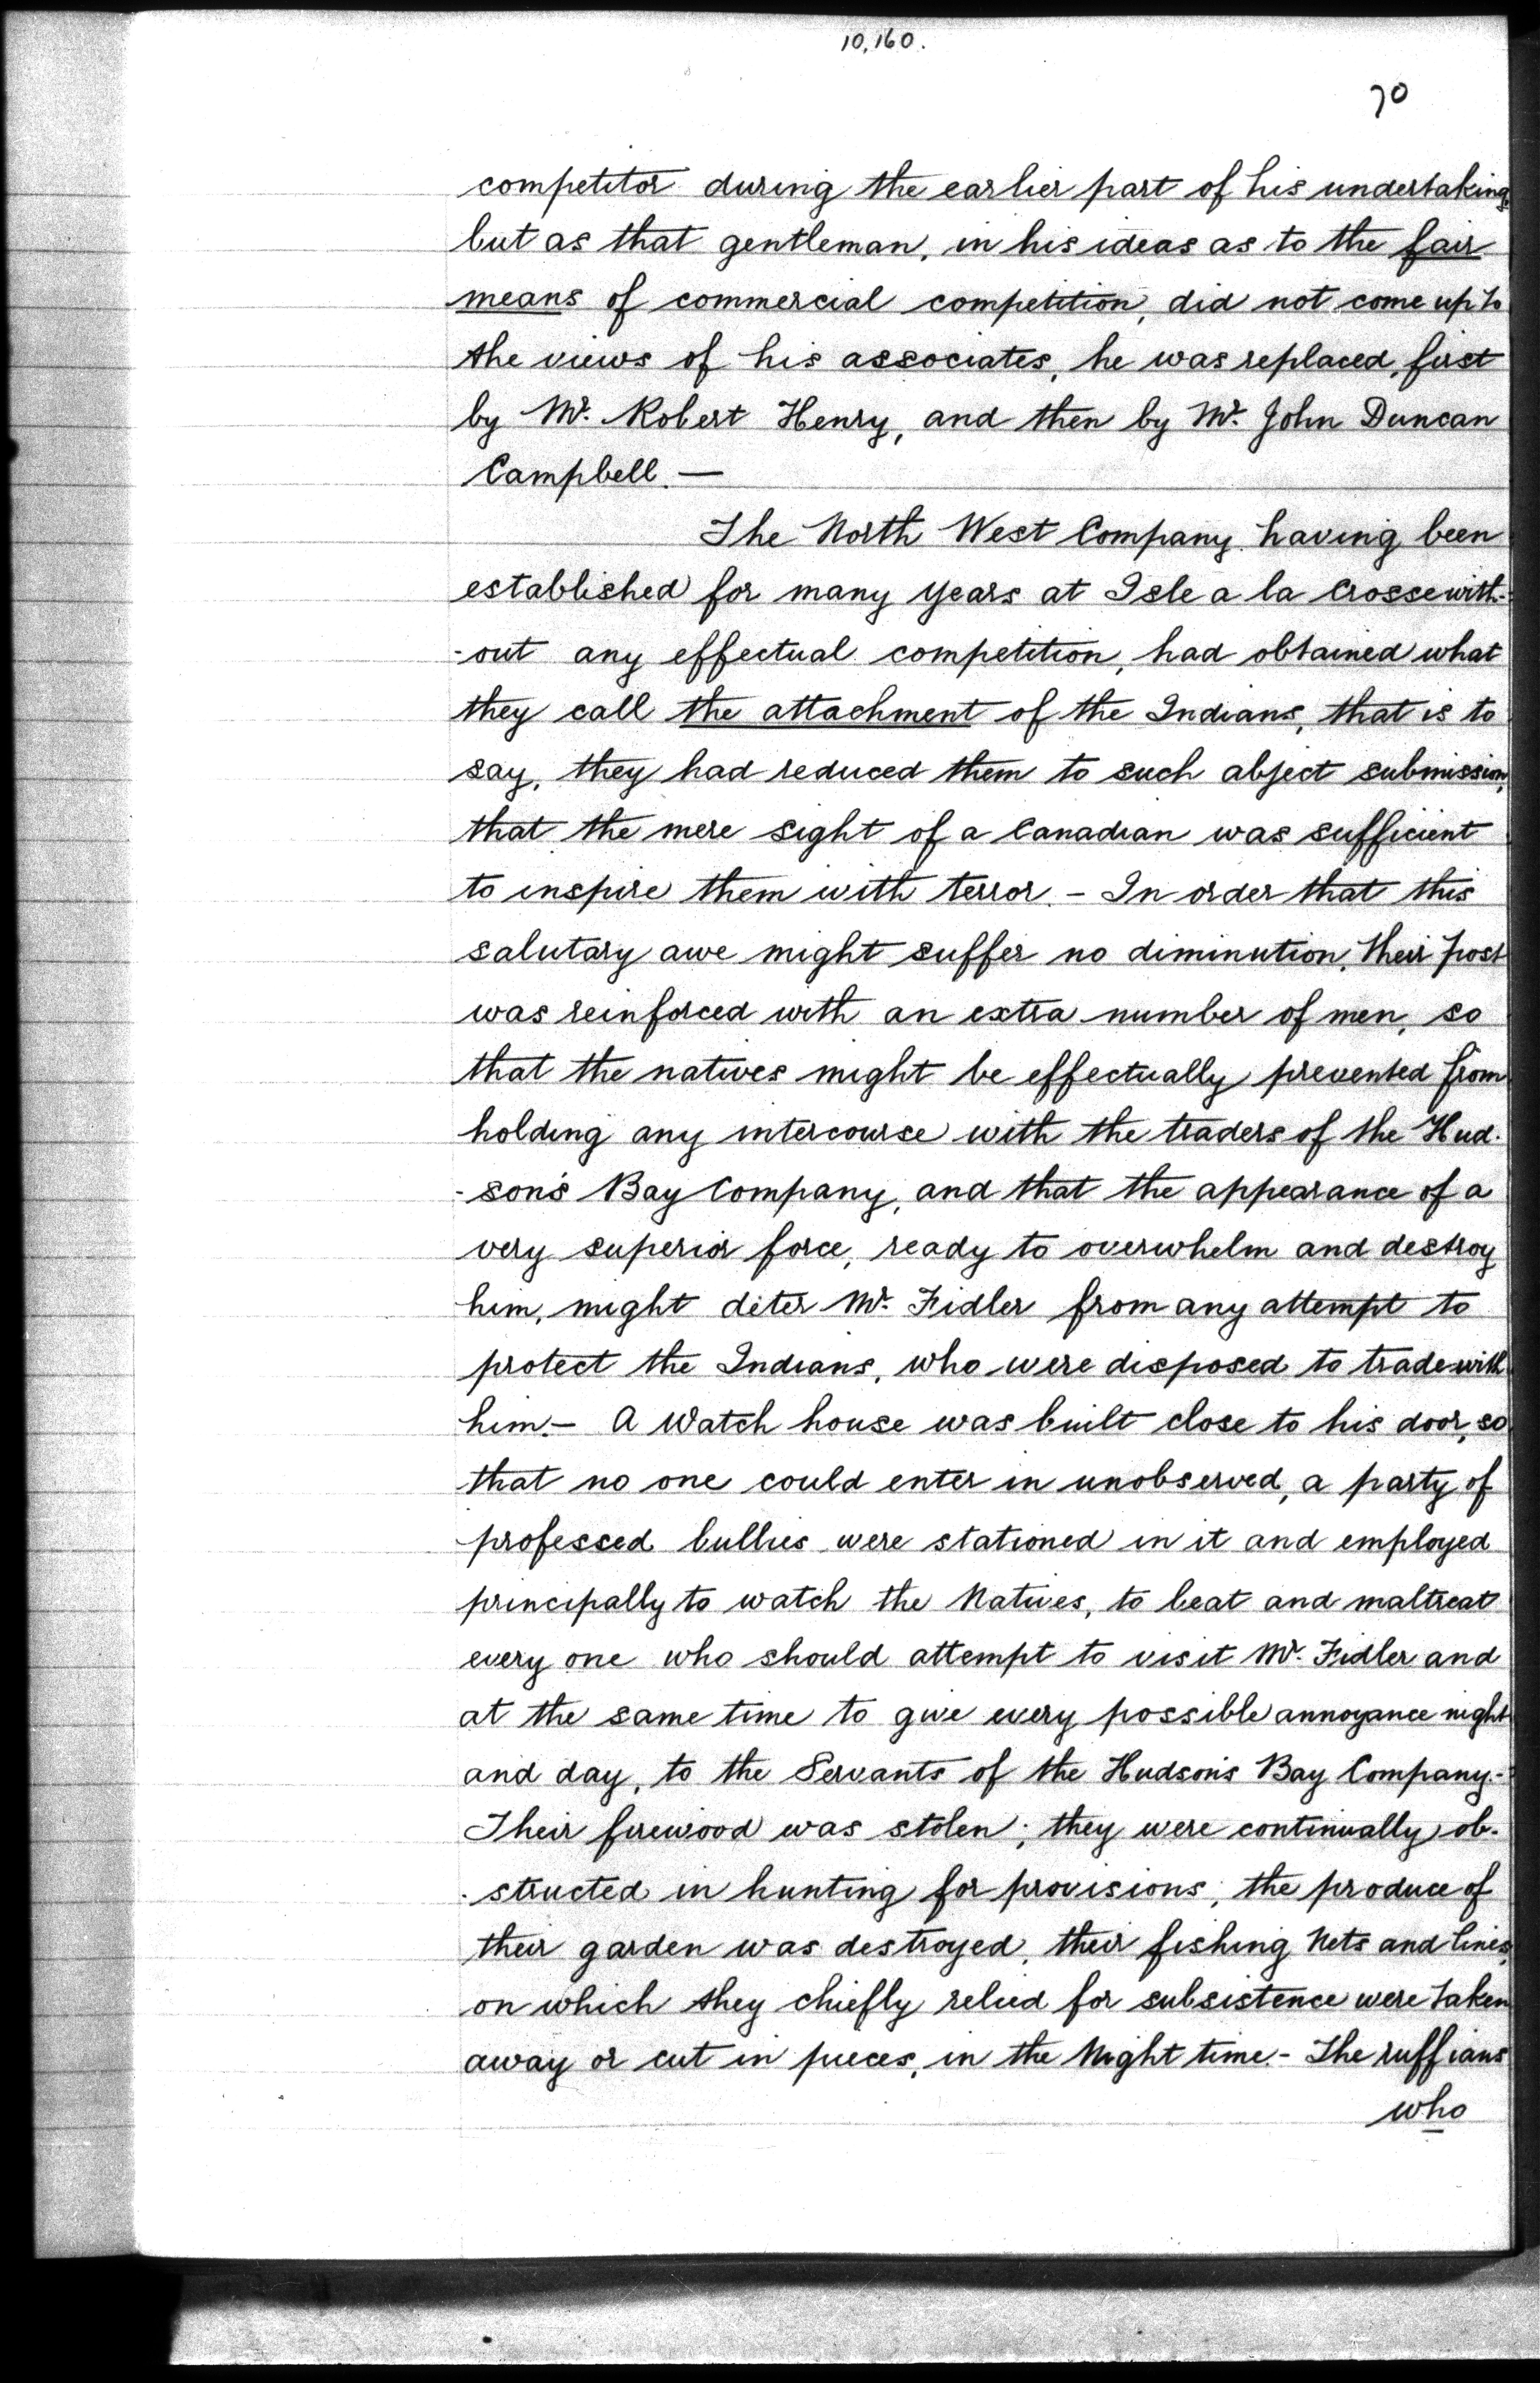 10,160.
70
competitor during the earlier part of his undertaking,
but as that gentleman, in his ideas as to the fair
means of commercial competition, did not come up to
the views of his associates, he was replaced, first
by Mr. Robert Henry, and then by Mr. John Duncan
Campbell. —
The North West Company having been
established for many years at Isle a la Crosse with-
-out any effectual competition, had obtained what
they call the attachment of the Indians, that is to
say, they had reduced them to such abject submission,
that the mere sight of a Canadian was sufficient
to inspire them with terror. - In order that this
salutary awe might suffer no diminution, their post
was reinforced with an extra number of men, so
that the natives might be effectually prevented from
holding any intercourse with the traders of the Hud-
-son's Bay Company, and that the appearance of a
very superior force, ready to overwhelm and destroy
him, might deter Mr. Fidler from any attempt to
protect the Indians, who were disposed to trade with
him. - A Watch house was built close to his door, so
that no one could enter in unobserved, a party of
professed bullies were stationed in it and employed
principally to watch the Natives, to beat and maltreat
every one who should attempt to visit Mr. Fidler and
at the same time to give every possible annoyance night
and day, to the Servants of the Hudson's Bay Company. -
Their firewood was stolen; they were continually ob-
-structed in hunting for provisions; the produce of
their garden was destroyed, their fishing Nets and lines,
on which they chiefly relied for subsistence were taken
away or cut in pieces, in the Night time. - The ruffians
who